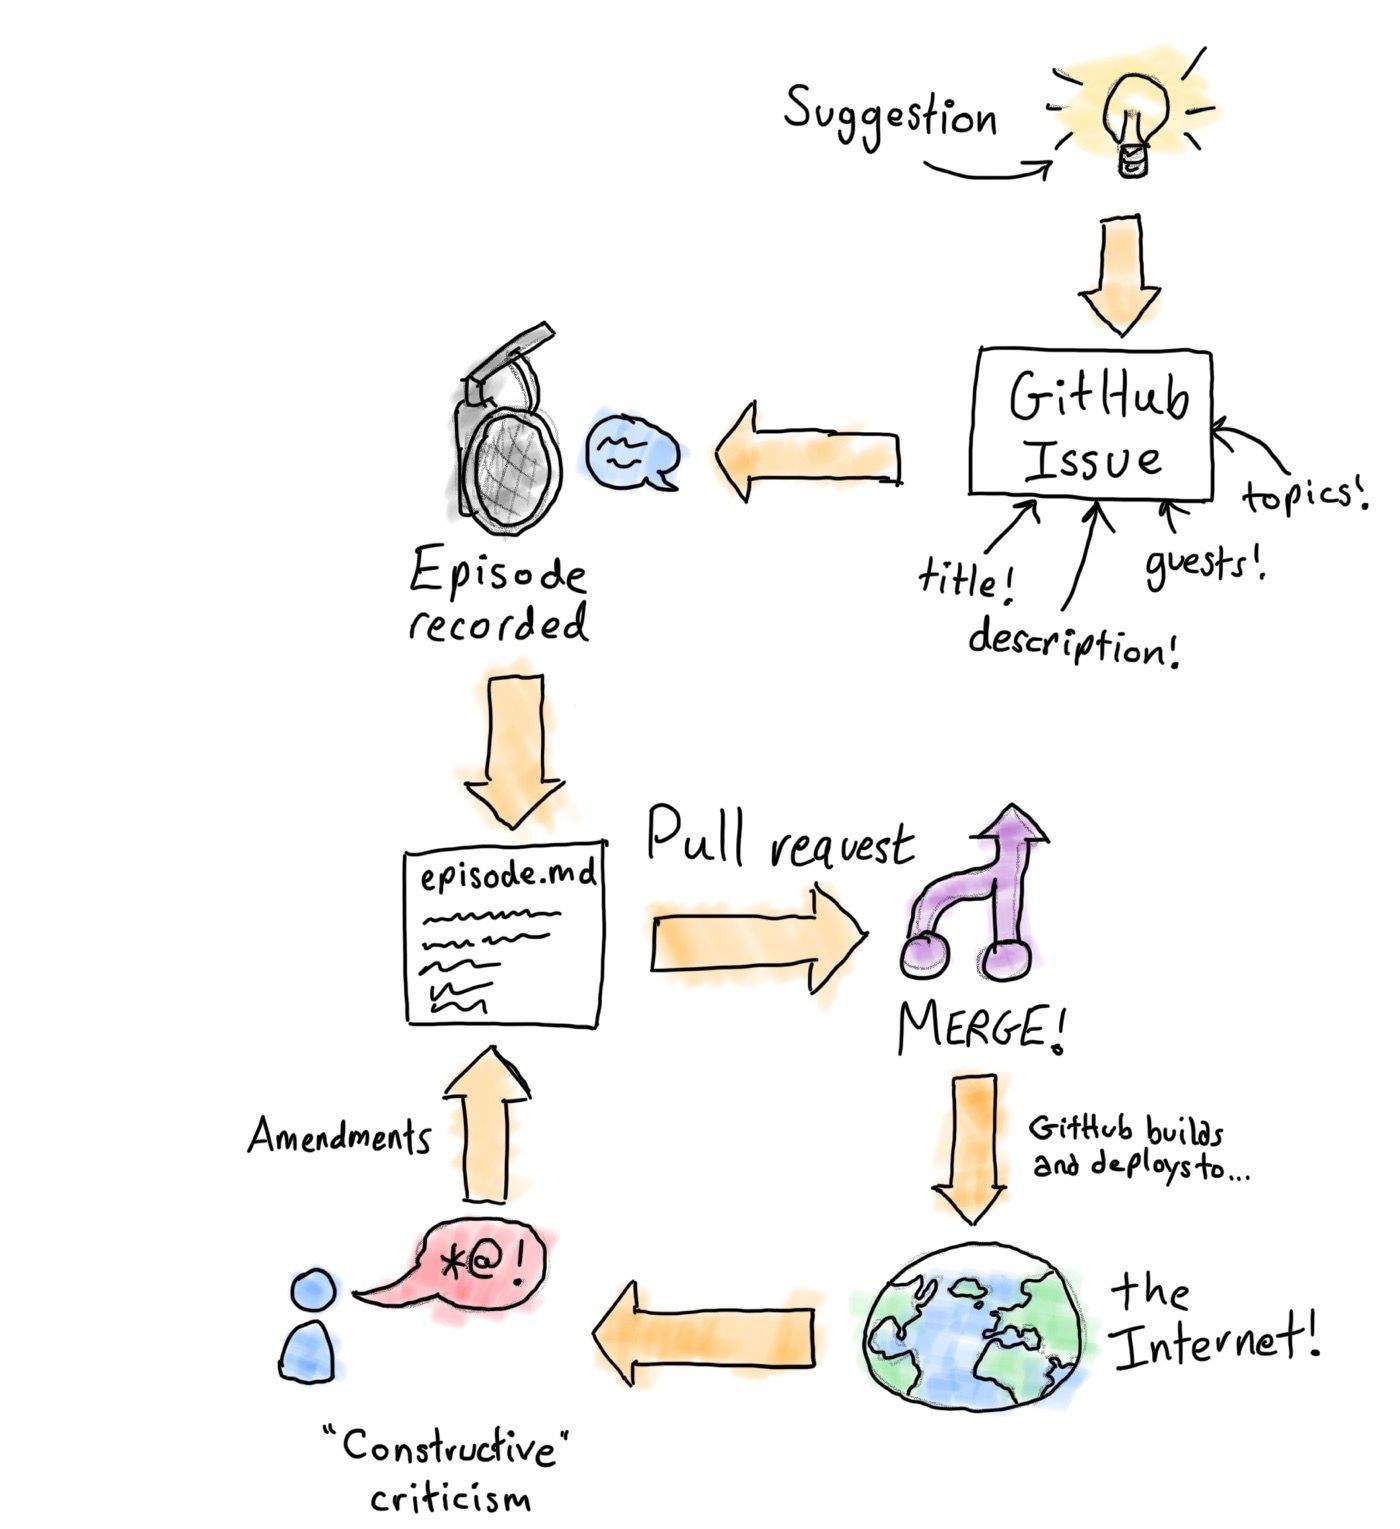 Suggestion
GitHub
Issue
topics!
guests!
title!
description!
Episode
recorded
episode.md
Pull request
MERGE!
GitHub builds
and deploys to...
the
Internet!
Amendments
*@!
"Constructive"
criticism